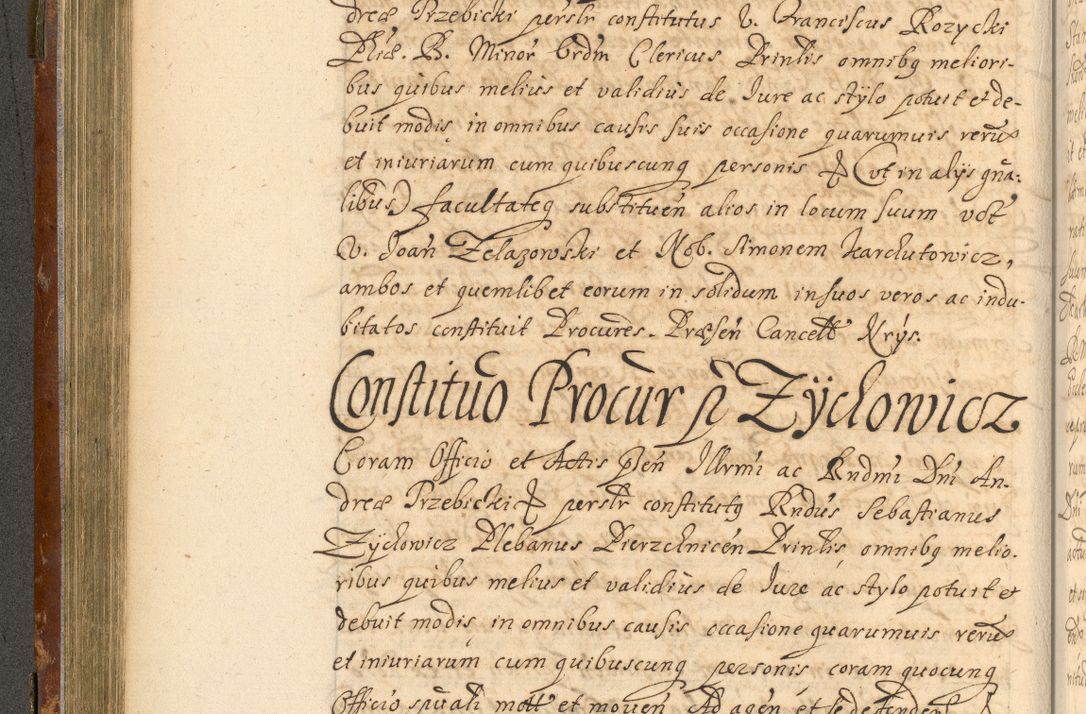 dreæ Trzebicki persłr constitutus V. Franciscus Rozycki
Phiæ. B. Minor̃ Ordm̃ Clericus Prinlis omnibꝫ meliori-
bus quibus melius et validius de Iure ac stÿlo potuit et de-
buit modis in omnibus causis suis occasione quarumuis rerũ
et iniuriarum cum quibuscunq personis & (vt in alÿs gña:
libus) facultateq substituen̄ alios in locum suum vdt
V. Joan̄ Zelazowski et Nob. Simonem Karchutowicz,
ambos et quemlibet eorum in solidum in suos veros ac indu-
bitatos constituit Procures. Præsen̄ Cancełł Nrÿs.
Constituo Procur p̃ Zÿchowicz
Coram Officio et Actis p̃sen̄ Illrmi ac Rndmi Dni An-
dreæ Trzebicki & persłr constitutꝫ Rndus Sebastianus
Zÿchowicz Plebanus Pierzchnicen̄ Prinlis omnibꝫ melio-
ribus quibus melius et validius de Iure ac stylo potuit et
debuit modis in omnibus causis occasione quarumuis rerũ
et iniuriarum cum quibuscunq personis coram quocunq
Officio spũali mott et mouen̄ Ad agen̄ et se defenden̄